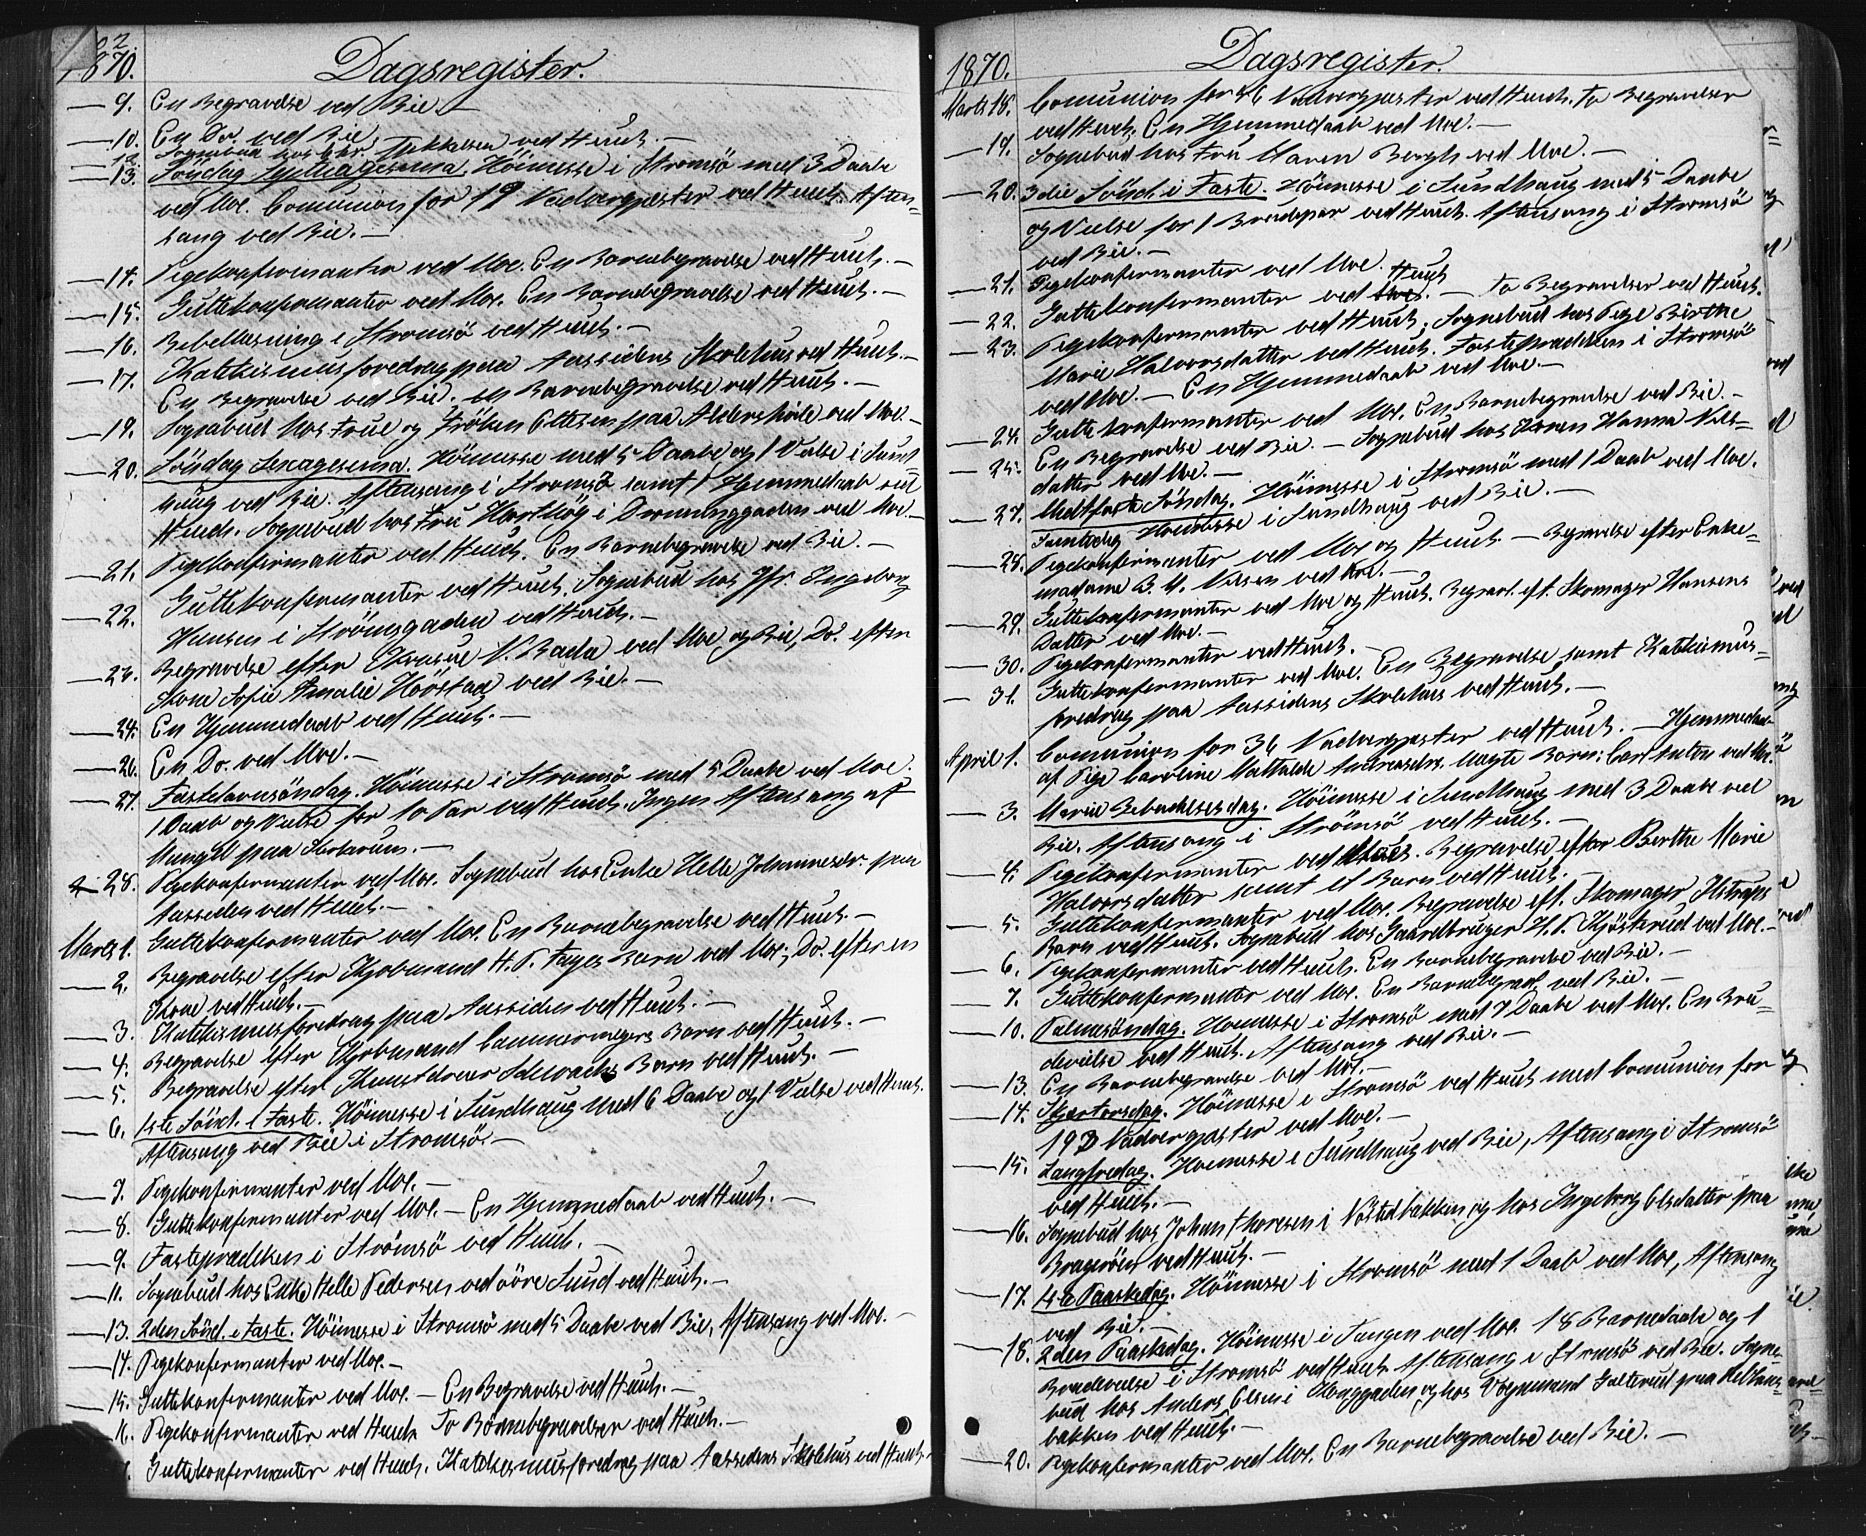 1870. Dagsregister.
— 9. En Begravelse ved Bie. —
— 10. En Do. ved Bie.
— 12. Sognebud hos Tykkesen ved Huuch. —
— 13. Søndag Septuagesima. Höimesse i Strømsö med 3 Daabe
ved Moe. Comunion for 19 Nadvergjæster ved Huuch. Aften-
sang ved Bie. —
— 14. Pigekonfirmanter ved Moe. En Barnebegravelse ved Huuch. —
— 15. Guttekonfirmanter ved Moe. En Barnebegravelse ved Huuch. —
— 16. Bibellæsning i Strømsö ved Huuch. —
— 17. Katekismusforedrag paa Aassidens Skolehus ved Huuch. —
En Begravelse ved Bie. En Barnebegravelse ved Huuch. —
— 19. Sognebud hos Frue og Fröken Ottesen paa Aldershvile ved Moe. —
— 20. Söndag Sexagesima. Höimesse med 5 Daabe og 1 Vielse i Sund-
haug ved Bie. Aftensang i Strømsö samt 1 Hjemmedaab ved
Huuch. Sognebud hos Fru Hartlög i Dronninggaden ved Moe. —
— 21. Pigekonfirmanter ved Huuch. En Barnebegravelse ved Bie. —
— 22. Guttekonfirmanter ved Huuch. Sognebud hos Jfr. Ingeborg
Hansen i Strömsgaden ved Huuch. —
— 23. Begravelse efter N. Bada ved Moe og Bie, Do. efter
Kone Sofie Amalie Höistad ved Bie. —
— 24. En Hjemmedaab ved Huuch. —
— 26. En Do. ved Moe. —
— 27. Fastelavnsöndag. Höimesse i Strømsö med 5 Daabe ved Moe.
1 Daab og Vielse for to Par ved Huuch. Ingen Aftensang af
Mangel paa Auditorium. —
— 28. Pigekonfirmanter ved Moe. Sognebud hos Enke Helle Johannesdr. paa
Aassiden ved Huuch. —
Marts 1. Guttekonfirmanter ved Moe. En Barnebegravelse ved Huuch. —
— 2. Begravelse efter Kjøbmand H. P. Fayes Barn ved Moe; Do. efter en
Kone ved Huuch. —
— 3. Katekismusforedrag paa Aassiden ved Huuch. —
— 4. Begravelse efter Kjøbmand Cammermeyers Barn ved Huuch. —
— 5. Begravelse efter Kunstdreier Schwachs Barn ved Huuch. —
— 6. 1ste Sönd. i Faste. Höimesse i Sundhaug med 6 Daabe og 1 Vielse ved Huuch.
Aftensang ved Bie i Strømsö. —
— 7. Pigekonfirmanter ved Moe. —
— 8. Guttekonfirmanter ved Moe. — En Hjemmedaab ved Huuch. —
— 9. Fasteprædiken i Strömsö ved Huuch. —
— 11. Sognebud hos Enke Helle Pedersen ved övre Sund ved Huuch. —
— 13. 2den Sönd. i Faste. Höimesse i Strømsö med 5 Daabe ved Bie, Aftensang ved Moe. —
— 14. Pigekonfirmanter ved Moe. —
— 15. Guttekonfirmanter ved Moe. — En Begravelse ved Huuch. —
16. Pigekonfirmanter ved Huuch. To Börnebegravelser ved Huuch. —
Guttekonfirmanter ved Huuch. Katekismusforedrag paa Aassidens Skolehus ved Huuch. —
1870. Dagsregister.
Marts 18. Comunion for 46 Nadvergjæster ved Huuch. To Begravelser
ved Huuch. En Hjemmedaab ved Moe. —
— 19. Sognebud hos Fru Maren Bergh ved Moe. —
— 20. 3die Sönd. i Faste. Höimesse i Sundhaug med 5 Daabe
og Vielse for 1 Brudepar ved Huuch. Aftensang i Strømsö
ved Bie. —
— 21. Pigekonfirmanter ved Moe.
— 22. Guttekonfirmanter ved Huuch. — To Begravelser ved Huuch.
— 23. Pigekonfirmanter ved Huuch. Sognebud hos Pige Birthe
Marie Halvorsdatter ved Huuch. Fasteprædiken i Strømsö
ved Moe. — En Hjemmedaab ved Moe —
— 24. Guttekonfirmanter ved Moe. En Barnebegravelse ved Bie. —
— 25. En Begravelse ved Bie. — Sognebud hos Konen Hanna Nils-
datter ved Moe. —
— 27. Midtfaste Söndag. Höimesse i Strømsö med 1 Daab ved Moe.
Samtidig Höimesse i Sundhaug ved Bie. —
— 28. Pigekonfirmanter ved Moe og Huuch — Begravelse efter Enke-
madame B. M. Nilsen ved Moe. —
— 29. Guttekonfirmanter ved Moe og Huuch. Begravl. eft. Skomager Hansens
Datter ved Moe. —
— 30. Pigekonfirmanter ved Huuch. —
— 31. Guttekonfirmanter ved Moe. En Begravelse samt Katekismus-
foredrag paa Aassidens Skolehus ved Huuch. —
April 1. Comunion for 36 Nadvergjæster ved Huuch. — Hjemmedaab
af Pige Caroline Mathilde Andreasdrs. uægte Barn: Carl Anton ved Moe.
— 3. Mariæ Bebudelsesdag. Höimesse i Sundhaug med 3 Daabe ved
Bie. Aftensang i Strömsö ved Huuch. —
— 4. Pigekonfirmanter ved Huuch. Begravelse efter Berthe Marie
Halvorsdatter samt et Barn ved Huuch. —
— 5. Guttekonfirmanter ved Moe. Begravelse eft. Skomager
Barn ved Huuch. Sognebud hos Gaardbruger H. P. Kjøsterud ved Moe. —
— 6. Pigekonfirmanter ved Huuch. En Barnebegravelse ved Bie. —
— 7. Guttekonfirmanter ved Moe. En Barnebegravl. ved Bie. —
— 10. Palmesöndag. Höimesse i Strømsö med 7 Daabe ved Moe. En Bru-
devielse ved Huuch. Aftensang ved Bie. —
— 13. En Barnebegravelse ved Moe. —
— 14. Skjærtorsdag. Höimesse i Strømsö ved Huuch med Comunion for
193 Nadvergjæster ved Moe. —
— 15. Langfredag. Höimesse i Sundhaug ved Bie, Aftensang i Strømsö
ved Huuch. —
— 16. Sognebud hos Johan Thoresen i Nöstedbakken og hos Ingeborg Olsdatter paa
Bragerøen ved Huuch. —
— 17. 1ste Paaskedag. Höimesse i Strømsö med 1 Daab ved Moe, Aftensang
ved Bie. —
— 18. 2den Paaskedag. Höimesse i Tangen ved Moe. 18 Barnedaabe og 1
Brudevielse i Strømsö ved Huuch. Aftensang i Strømsö ved Bie. Sogne-
bud hos Anders Olsen i Konggaden og hos Vognmand Galterud paa
bakken ved Huuch. —
— 20. Pigekonfirmanter ved Moe. En Barnebegravelse ved Bie. —